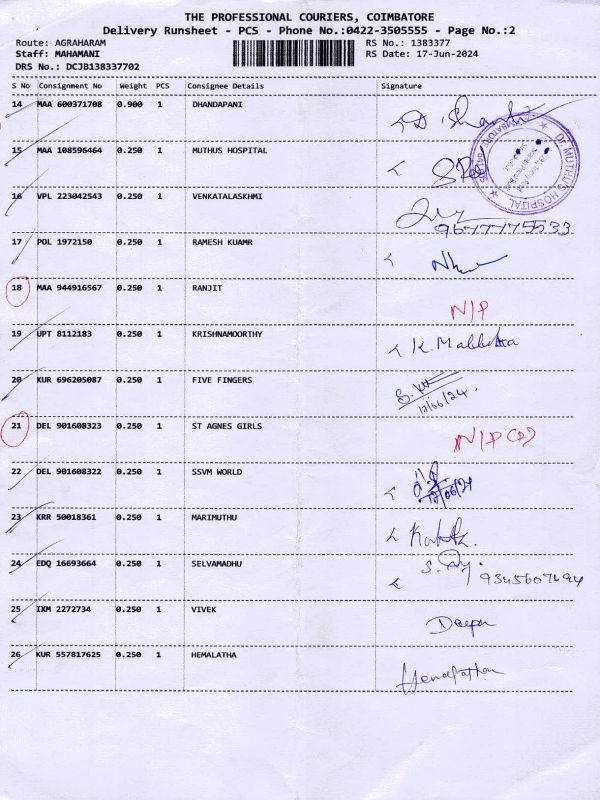 THE PROFESSIONAL COURIERS, COIMBATORE
Delivery Runsheet - PCS - Phone No.:0422-3505555 - Page No.:2
Route: AGRAHARAM RS No.: 1383377
Staff: MAHAMANI RS Date: 17-Jun-2024
DRS No.: DCJB138337702
S No Consignment No Weight PCS Consignee Details Signature
14 MAA 600371708 0.900 1 DHANDAPANI
15 MAA 108596464 0.250 1 MUTHUS HOSPITAL
Dr. MUTHU'S HOSPITAL
16 VPL 223042543 0.250 1 VENKATALASKHMI
17 POL 1972150 0.250 1 RAMESH KUAMR
18 MAA 944916567 0.250 1 RANJIT N/P
19 UPT 8112183 0.250 1 KRISHNAMOORTHY
20 KUR 696205087 0.250 1 FIVE FINGERS
17/06/24.
21 DEL 901608323 0.250 1 ST AGNES GIRLS N/P
22 DEL 901608322 0.250 1 SSVM WORLD
23 KRR 50018361 0.250 1 MARIMUTHU
24 EDQ 16693664 0.250 1 SELVAMADHU
25 IXM 2272734 0.250 1 VIVEK Deepa
26 KUR 557817625 0.250 1 HEMALATHA